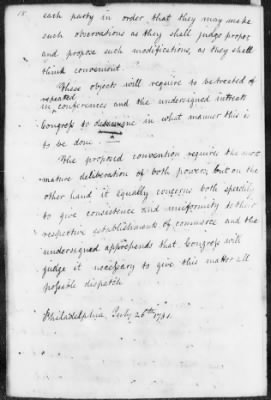 18
each party in order that they may make
such observations as they shall judge proper
and propose such modifications, as they shall
think convenient.
These objects will require to be treated of
repeated
in conferences and the undersigned intreats
Congress to determine in what manner this is
to be done.
The proposed convention requires the most
mature deliberation of both powers, but on the
other hand it equally concerns both speedily
to give consistence and uniformity to their
respective establishments of commerce and the
undersigned apprehends that Congress will
judge it necessary to give this matter all
possible dispatch
Philadelphia, July 26th 1781.